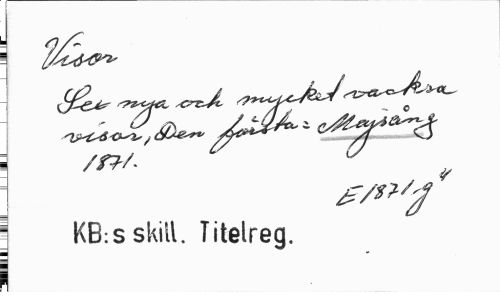 Visor
Sex nya och mycket vackra
visor, Den första: Majsång
1871.
E 1871.g⁴
KB:s skill. Titelreg.